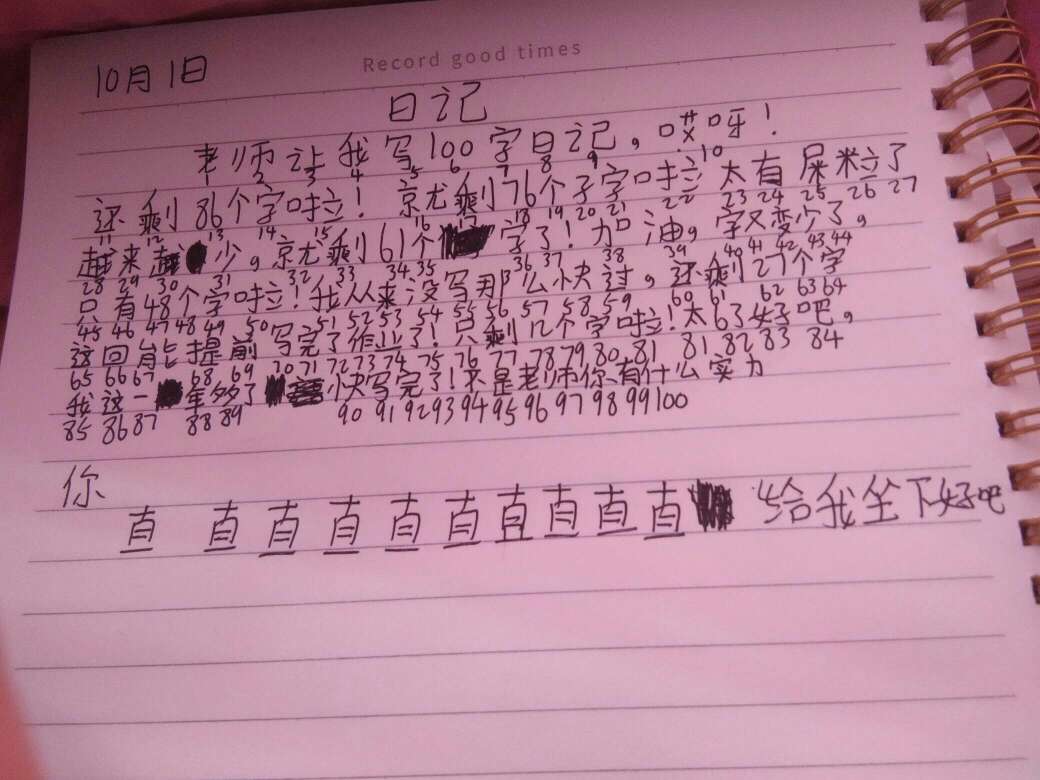 Record good times
10月1日
日记
老师让我写100字日记，哎呀！
1 2 3 4 5 6 7 8 9 10
还剩86个字啦！京尤剩76个子字啦 太有屎粒了
11 12 13 14 15 16 17 18 19 20 21 22 23 24 25 26 27
越来越少。京尤剩61个字了！加油。字又变少了，
28 29 30 31 32 33 34 35 36 37 38 39 40 41 42 43 44
只有48个字啦！我从来没写那么快过，还剩27个字
45 46 47 48 49 50 51 52 53 54 55 56 57 58 59 60 61 62 63 64
这回能提前写完了作业了！只剩12个字啦！太了好吧，
65 66 67 68 69 70 71 72 73 74 75 76 77 78 79 80 81 81 82 83 84
我这一年够了快写完了！不是老师你有什么实力
85 86 87 88 89 90 91 92 93 94 95 96 97 98 99 100
你
直 直 直 直 直 直 直 直 直 直 给我坐下好吧